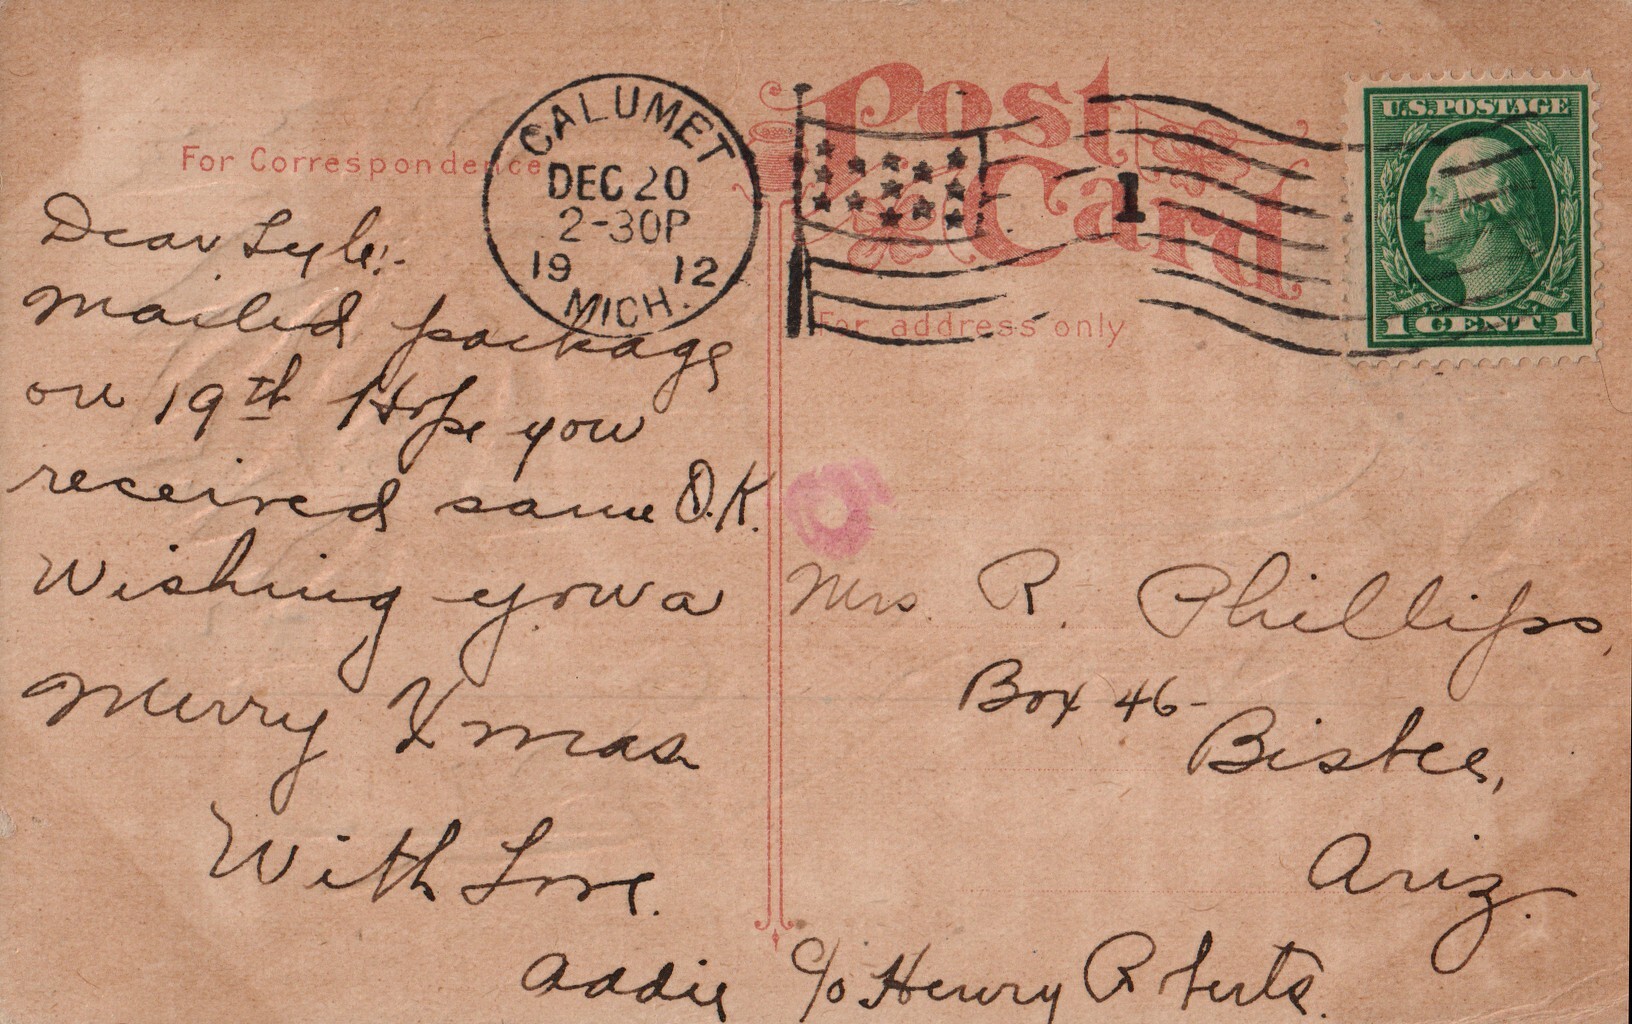 Post
Card
For Correspondence
CALUMET
DEC 20
2-30P
19 12
MICH.
1
U.S. POSTAGE
1 CENT 1
For address only
Dear Lyle:-
Mailed package
on 19th Hope you
received same O.K.
Wishing you a
Merry Xmas
With Love.
Addie
Mrs. R. Phillips,
Box 46-
Bisbee,
Ariz.
c/o Henry Roberts.